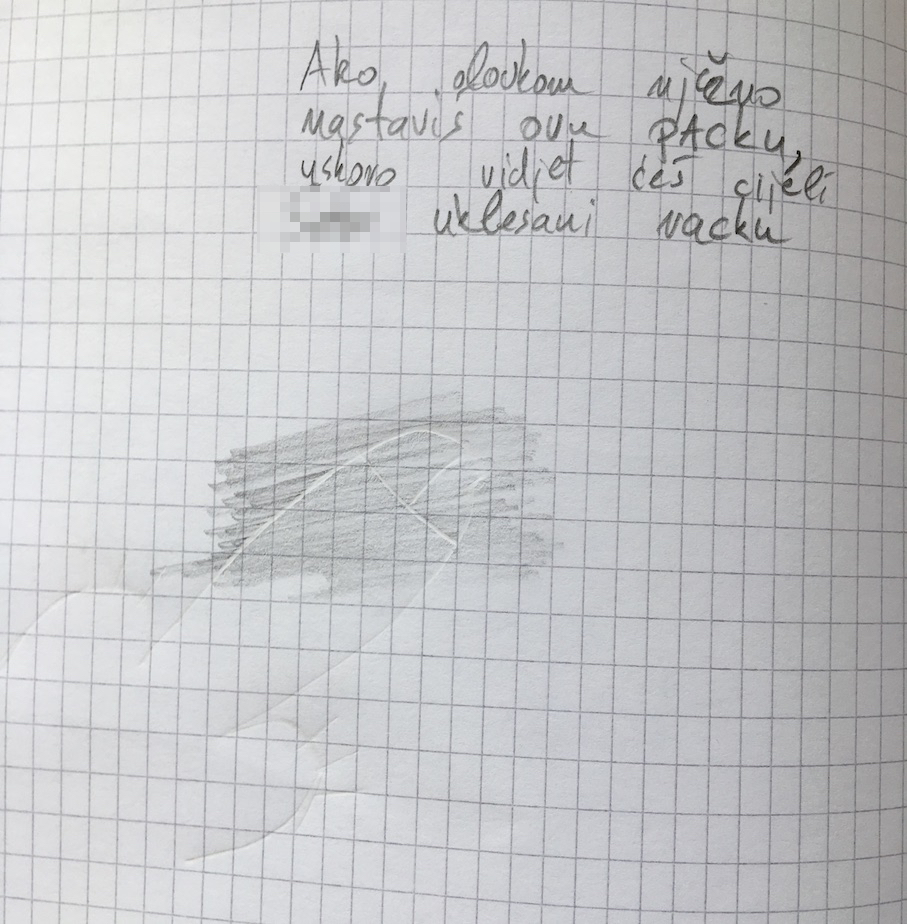 Ako, olovkom nježno
nastaviš ovu pAcku,
uskoro vidjet ćeš cijeli
uklesani vacku